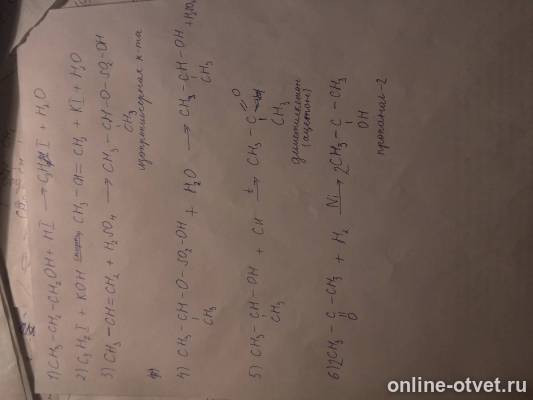 1) CH₃-CH₂-CH₂OH + HI → C₃H₇I + H₂O
2) C₃H₇I + KOH → CH₃-CH=CH₂ + KI + H₂O
3) CH₃-CH=CH₂ + H₂SO₄ → CH₃-CH-O-SO₂-OH
CH₃
к-та
4) CH₃-CH-O-SO₂-OH + H₂O → CH₃-CH-OH + H₂SO₄
CH₃
CH₃
5) CH₃-CH-OH + Cu →t CH₃-C=O
CH₃
CH₃
диметилкетон
(ацетон)
6) 2CH₃-C-CH₃ + H₂ →Ni 2CH₃-C-CH₃
O
OH
пропанол-2
online-otvet.ru